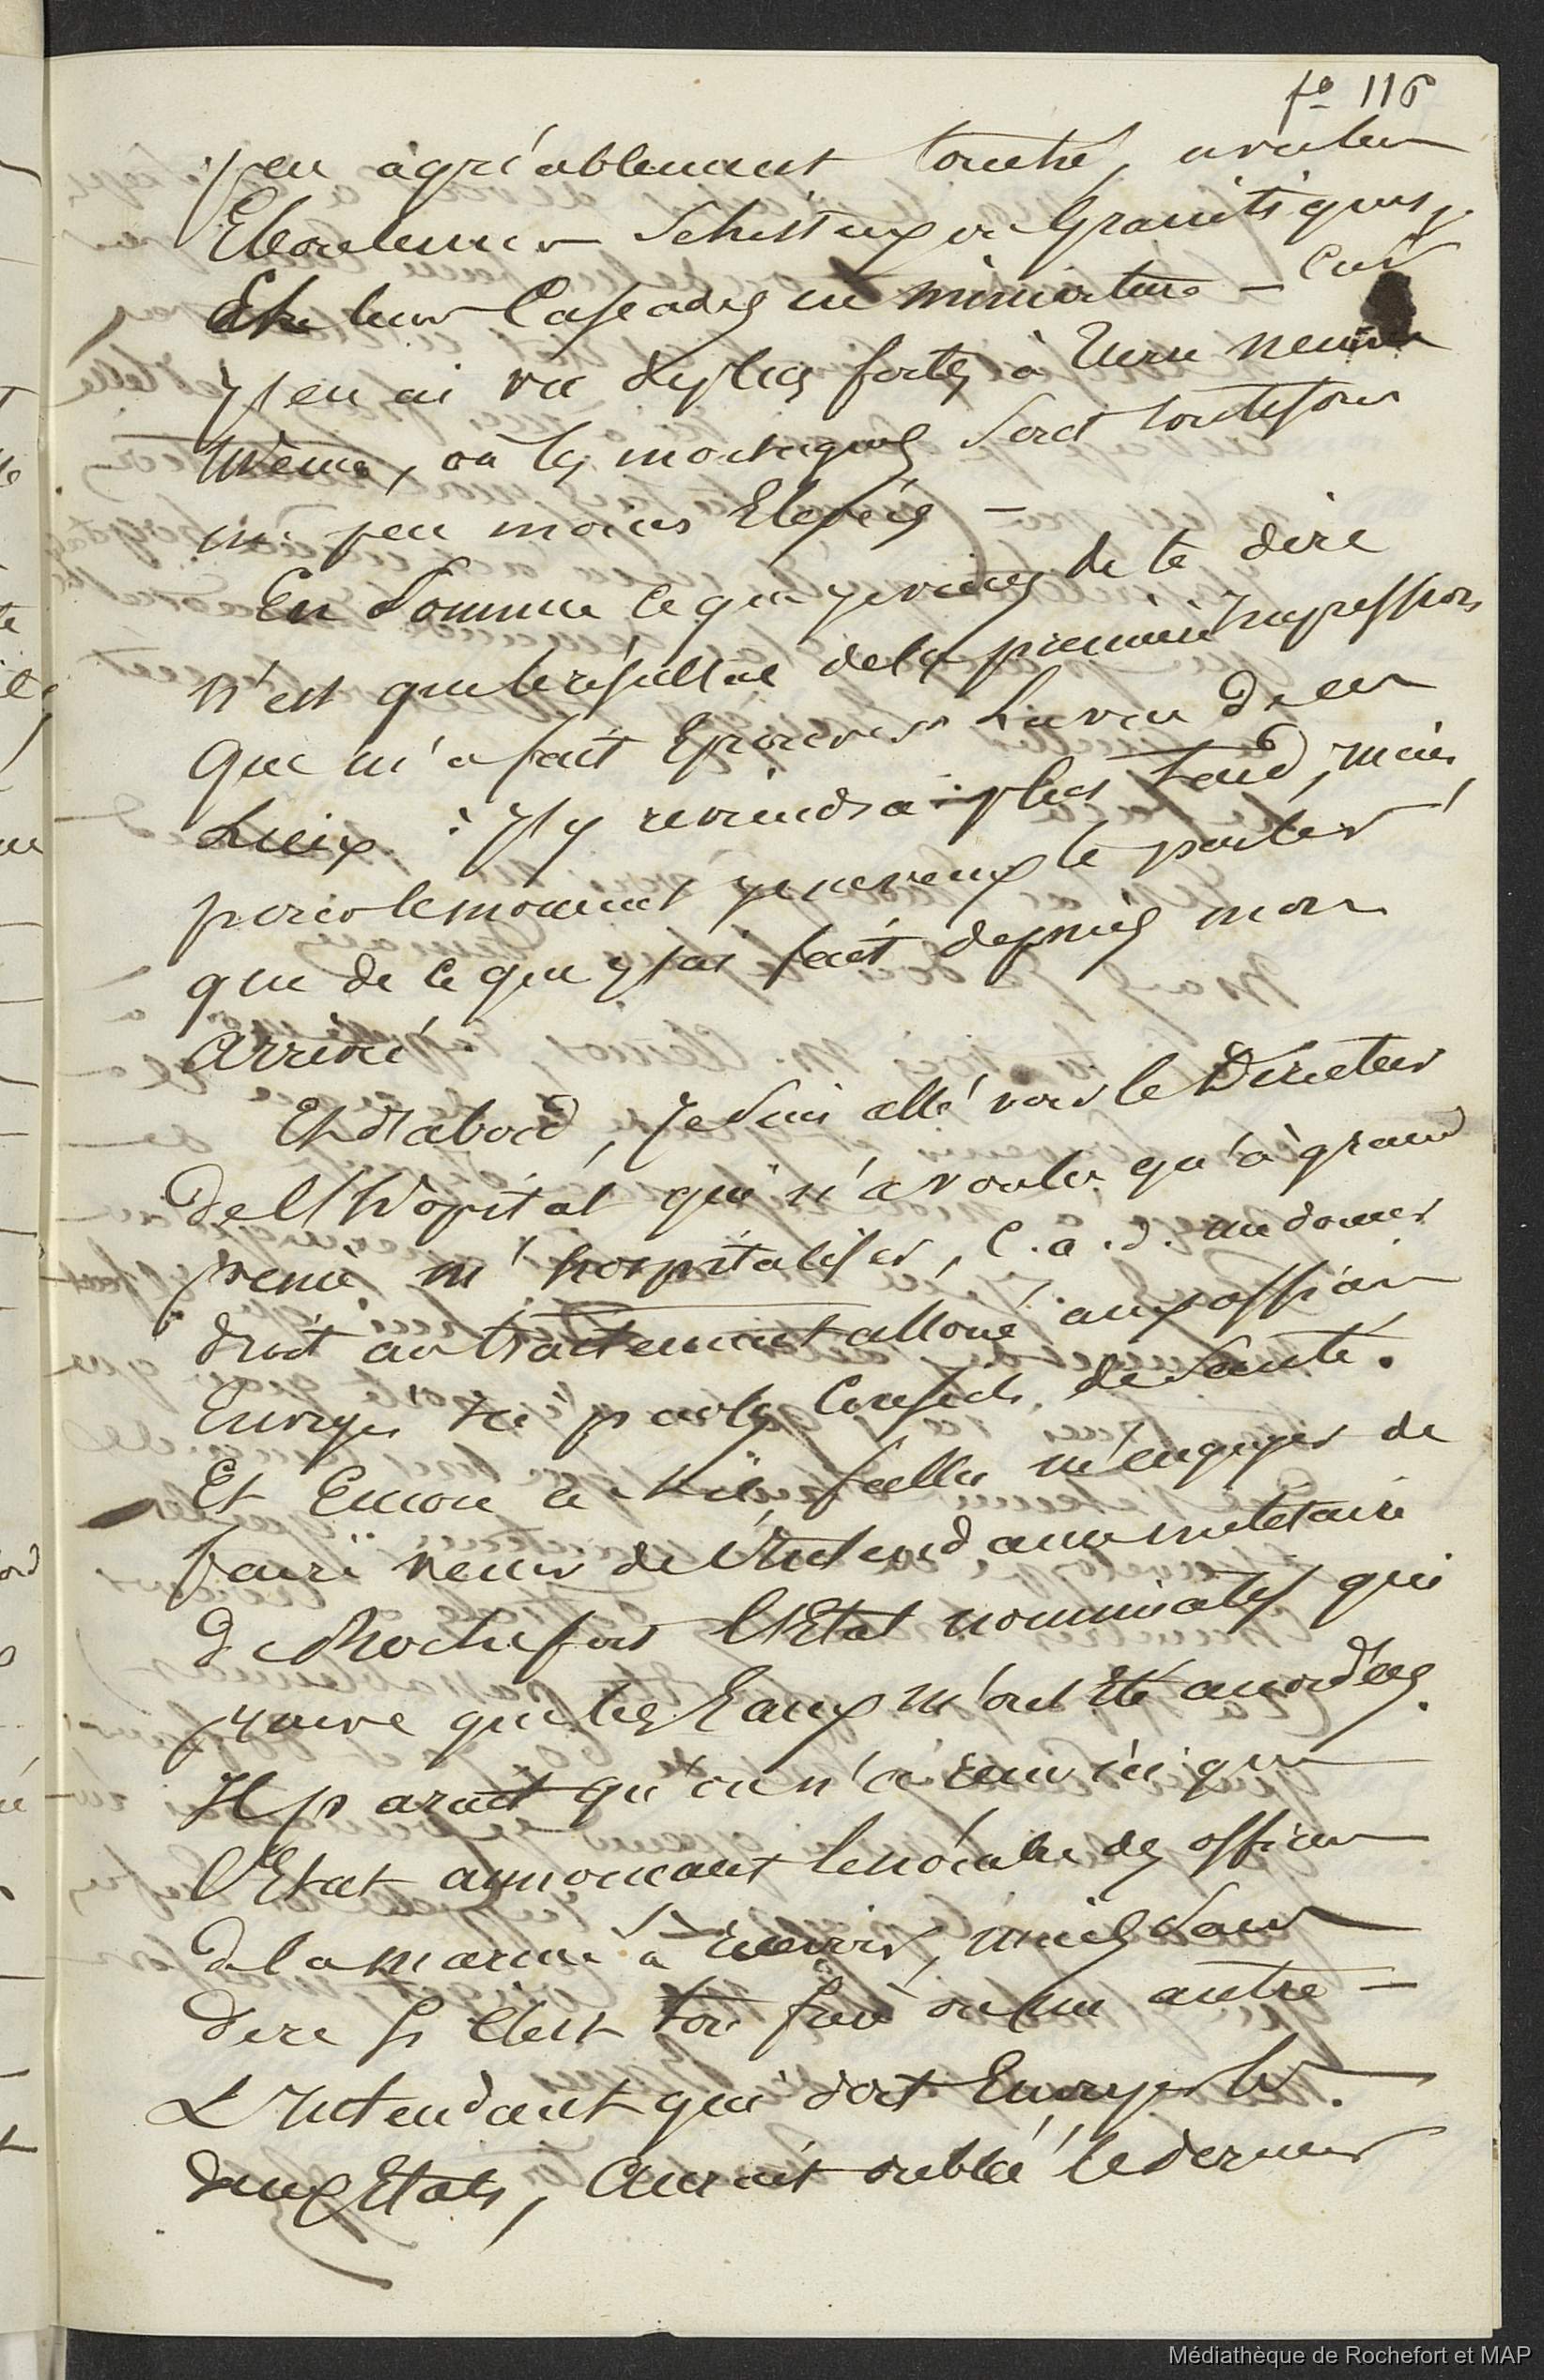 fo 116
peu agréablement touché, avec leurs
Eboulements Schisteux ou Granitiques,
Et leurs Cascades en miniature – Car
j'en ai vu de plus fortes à
même, où les montagnes sont toutefois
un peu moins Elevées –
En Somme ce que je viens de te dire
n'est que le résultat de la première Impression
que m'a fait Eprouver la vue de ces
Lieux : J'y reviendrai plus tard, mais,
pour le moment je ne veux te parler
que de ce que j'ai fait depuis mon
arrivée.
Et d'abord, Je suis allé voir le Directeur
de l'Hôpital qui n'a voulu qu'à grand
peine m'hospitaliser, C.à.d. me donner
droit au traitement alloué aux officiers
Envoyés ici par les Conseils de Santé.
Et Encore a-t-il fallu m'engager de
faire venir de l'Intendance militaire
de Rochefort l'Etat nominatif qui
prouve que les Eaux m'ont été accordées.
Il paraît qu'on n'a reçu ici que
l'Etat annonçant le nombre des officiers
de la marine à recevoir, mais sans
dire si c'est ton frère ou un autre –
L'Intendant qui doit Envoyer les
deux Etats, Aurait oublié le dernier
Médiathèque de Rochefort et MAP